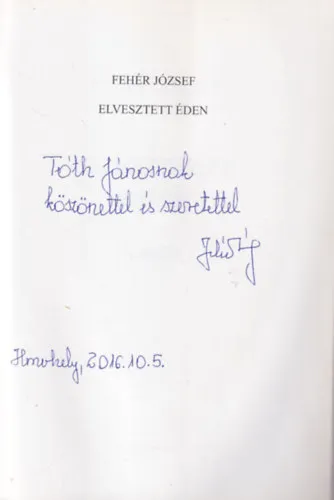 FEHÉR JÓZSEF
ELVESZTETT ÉDEN
Tóth Jánosnak
köszönettel és szeretettel
Hmvhely, 2016.10.5.